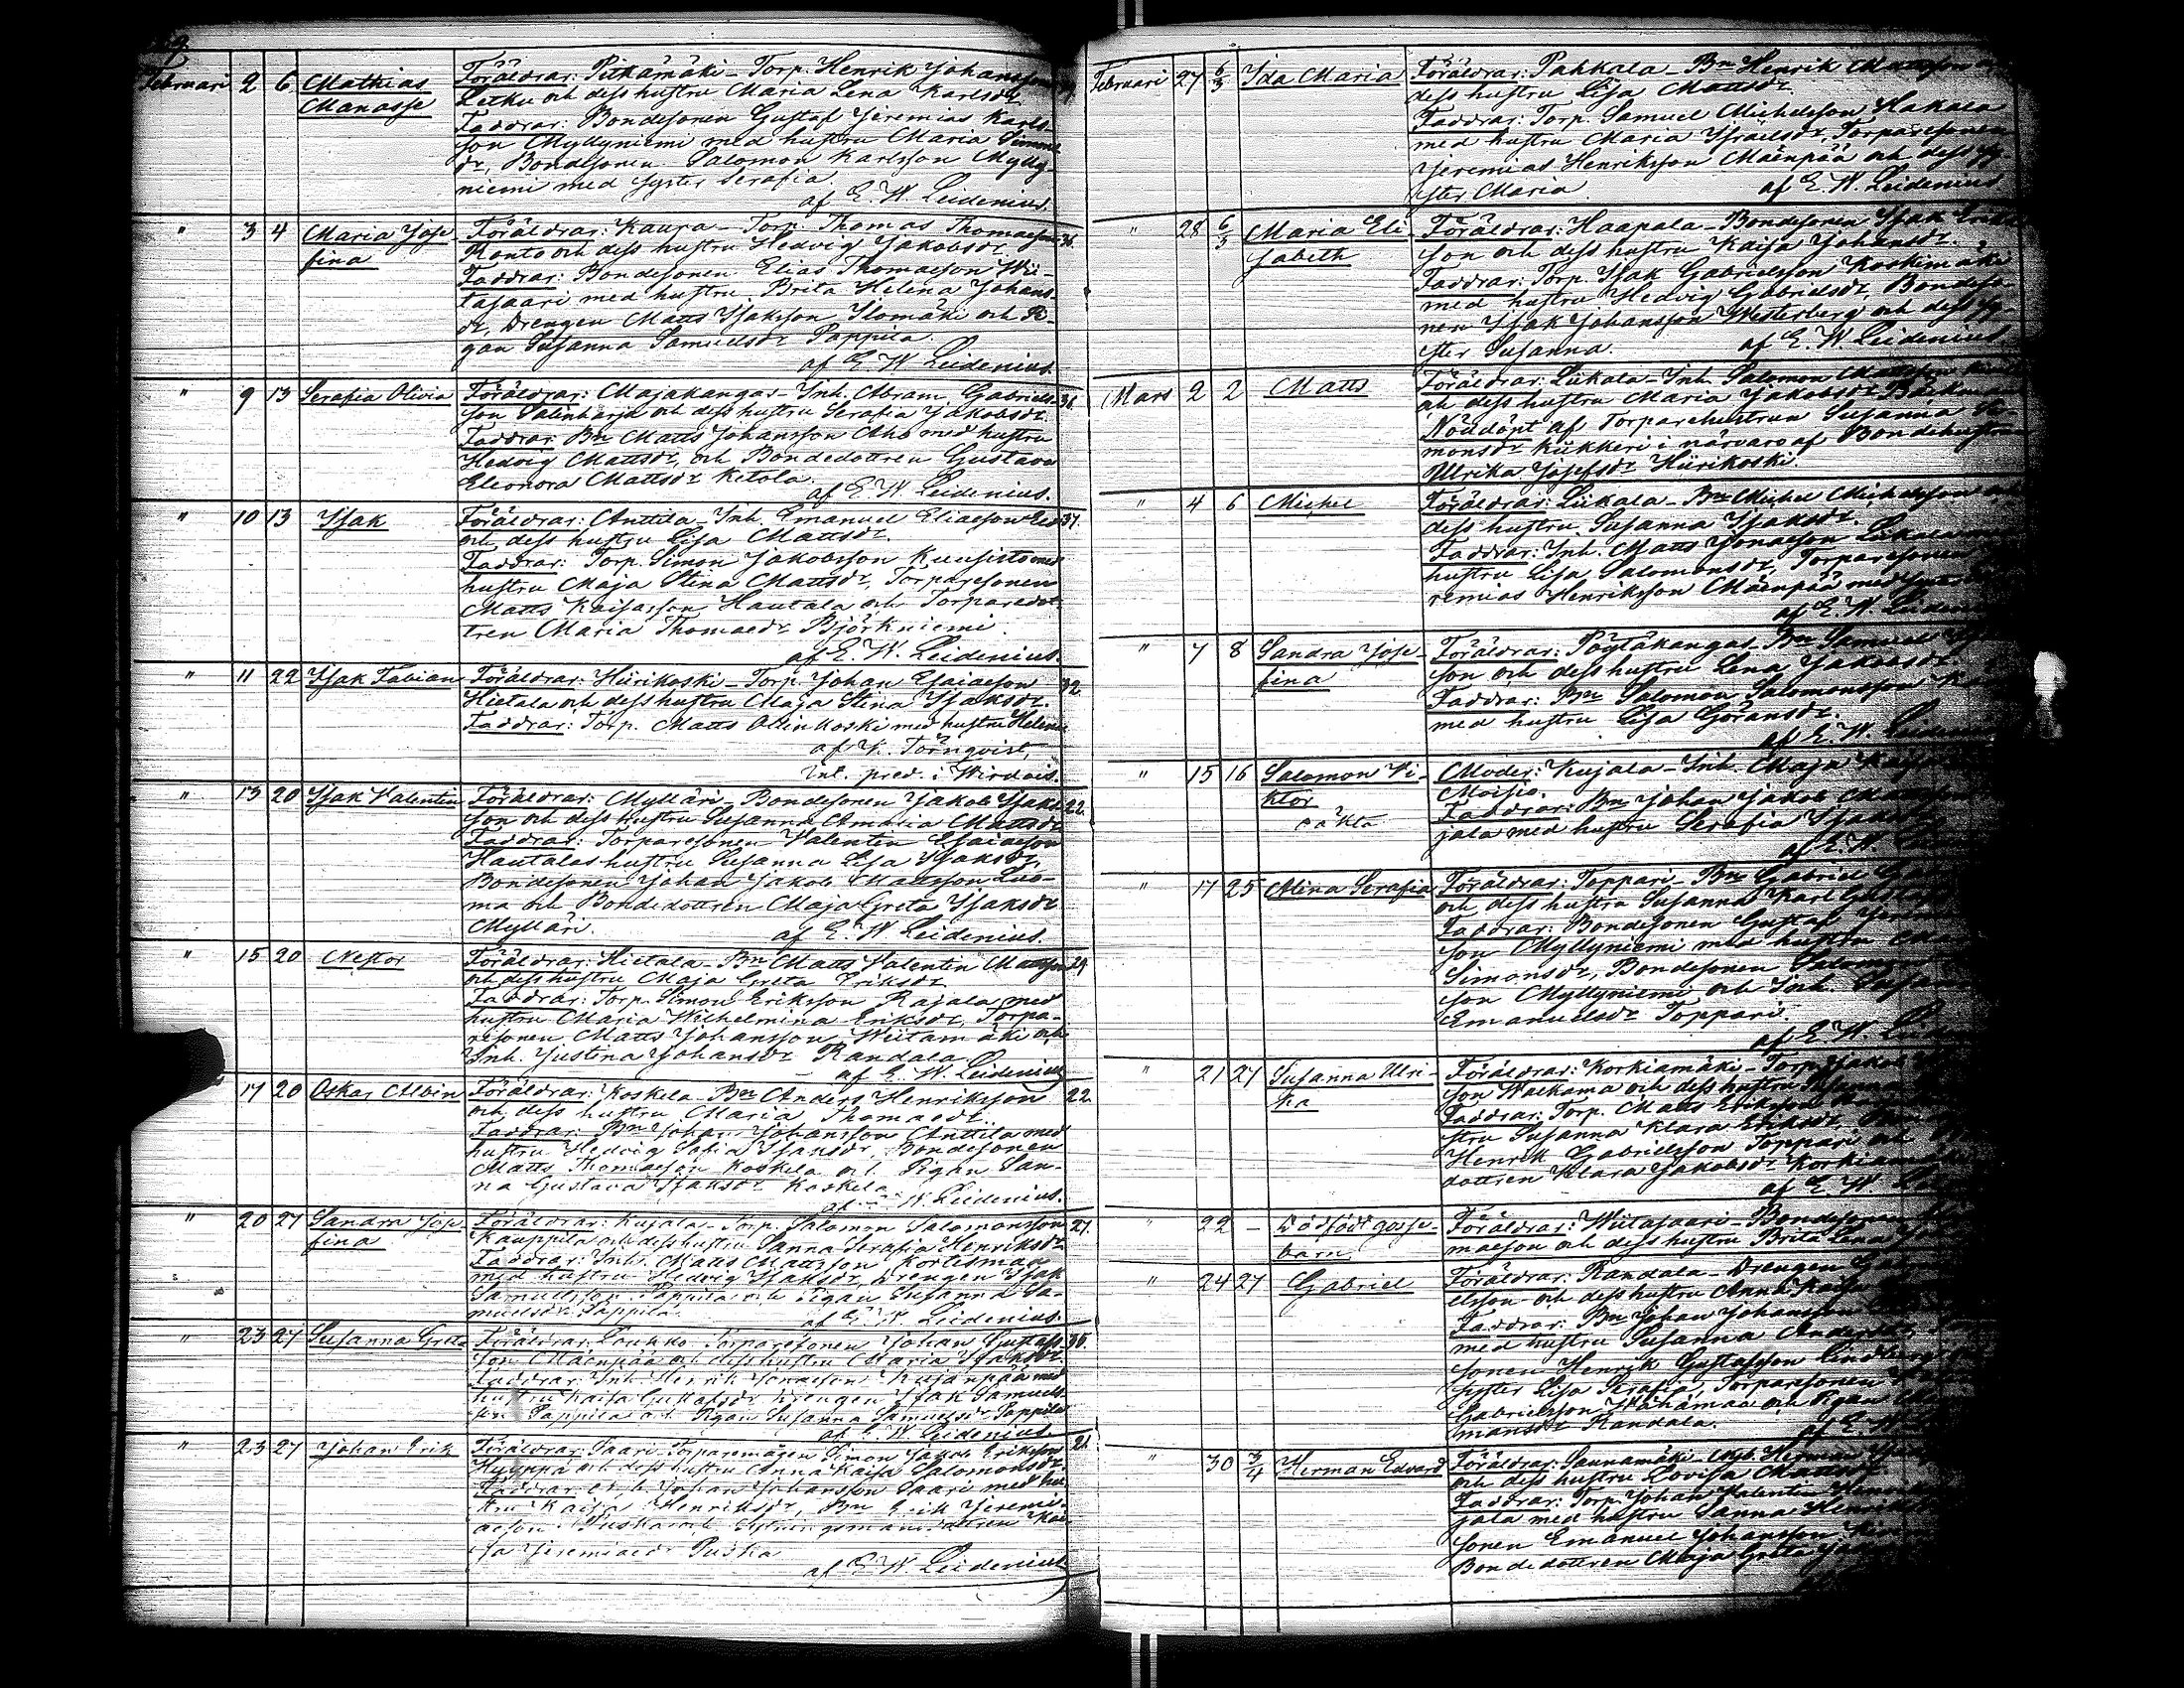 Februari 2 6 Mathias Manasse
Föräldrar: Pitkämäki - Torp. Henrik Johansson
Letku och dess hustru Maria Lena Karlsdr.
Faddrar: Bondesonen Gustaf Jeremias Karls-
son Myllyniemi med hustru Maria Simons
dr, Bondesonen Salomon Karlsson Mylly-
niemi med syster Serafia
af E. W. Leidenius.
" 3 4 Maria Josefina
Föräldrar: Kaura - Torp. Thomas Thomasson 36.
Ronto och dess hustru Hedvig Jakobsdr.
Faddrar: Bondesonen Elias Thomasson Wii-
tasaari med hustru Brita Helena Johans-
dr, Drengen Matts Isaksson Ilomäki och Pi-
gan Susanna Samuelsdr Pappila.
af E. W. Leidenius
" 9 13 Serafia Olivia
Föräldrar: Majakangas - Inh. Abram Gabriels-
son Salinharju och dess hustru Serafia Jakobsdr.
Faddrar: Bn Matts Johansson Aho med hustru
Hedvig Mattsdr, och Bondedottren Gustava
Eleonora Mattsdr Ketola.
af E. W. Leidenius.
" 10 13 Isak
Föräldrar: Anttila - Inh. Emanuel Eliasson 37.
och dess hustru Lisa Mattsdr.
Faddrar: Torp. Simon Jakobsson Kuusisto med
hustru Maja Stina Mattsdr, Torparesonen
Matts Kaisasson Hautala och Torparedot-
tren Maria Thomaedr Björkniemi.
af E. W. Leidenius.
" 11 22 Isak Fabian
Föräldrar: Hiirikoski - Torp. Johan Esaiaeson 32.
Hietala och dess hustru Maja Stina Isaksdr.
Faddrar: Torp. Matts Ollinkoski med hustru Helena
af K. Törnqvist,
int. pred. i Wirdois.
" 13 20 Isak Valentin
Föräldrar: Mylläri - Bondesonen Jakob Isaks- 22.
son och dess hustru Susanna Amalia Mattsdr
Faddrar: Torparesonen Valentin Esaiaeson
Hautalas hustru Susanna Lisa Isaksdr,
Bondesonen Johan Jakob Mattsson Luo-
ma och Bondedottren Maja Greta Isaksdr
Mylläri.
af E. W. Leidenius.
" 15 20 Nestor
Föräldrar: Hietala - Bn Matts Valentin Mattsson 29.
och dess hustru Maja Greta Eriksdr
Faddrar: Torp. Simon Eriksson Rajala med
hustru Maria Wilhelmina Eriksdr, Torpa-
resonen Matts Johansson Wiitamäki och
Inh. Justina Johansdr Randala.
af E. W. Leidenius
" 17 20 Oskar Alvin
Föräldrar: Koskela - Bn Anders Henriksson 22.
och dess hustru Maria Thomaedr.
Faddrar: Bn Johan Johansson Anttila med
hustru Hedvig Sofia Isaksdr, Bondesonen
Matts Thomaeson Koskela och Pigan San-
na Gustava Isaksdr Koskela
af E. W. Leidenius.
" 20 27 Sandra Josefina
Föräldrar: Kujala - Torp. Salomon Salomonsson 27.
Kauppila och dess hustru Sanna Serafia Henriksdr
Faddrar: Inh. Matts Mattsson Kortesmaa
med hustru Hedvig Isaksdr, Drengen Isak
Samuelsson Pappila och Pigan Susanna Sa-
muelsdr Pappila.
af E. W. Leidenius.
" 23 27 Susanna Greta
Föräldrar: Torparesonen Johan Gustafs-
son Mäenpää och dess hustru Maria Isaksdr.
Faddrar: Inh. Henrik Jonaeson Kujanpää med
hustru Kaisa Gustafsdr, Drengen Isak Samuels-
son Pappila och Pigan Susanna Samuelsdr Pappila
af E. W. Leidenius.
" 23 27 Johan Erik
Föräldrar: Saari - Torparemågen Simon Jakob Eriksson 21.
Hyyppä och dess hustru Anna Kaisa Salomonsdr
Faddrar: Johan Johansson Saari med hu-
stru Kaisa Henriksdr, Bn Erik Jeremi-
aeson Puska och dottren Kai-
sa Jeremiaedr Puska
af E. W. Leidenius
Februari 27 6/3 Ida Maria
Föräldrar: Pahkala - Bn Henrik Mattsson och
dess hustru Lisa Mattsdr.
Faddrar: Torp. Samuel Michelsson Hakala
med hustru Maria Israelsdr, Torparesonen
Jeremias Henriksson Mäenpää och dess sy-
ster Maria.
af E. W. Leidenius
" 28 6/3 Maria Elisabeth
Föräldrar: Haapala - Bondesonen Isak Eriks-
son och dess hustru Kaisa Johansdr.
Faddrar: Torp. Isak Gabrielsson Koskimäki
med hustru Hedvig Gabrielsdr, Bondeso-
nen Isak Johansson Westerberg och dess sy-
ster Susanna.
af E. W. Leidenius.
Mars 2 2 Matts
Föräldrar: Liikala - Inh. Salomon Mattsson
och dess hustru Maria Jakobsdr
Nöddöpt af Torparehustrun Susanna Sa-
monsdr Kükkeri i närvaro af Bondehustrun
Ulrika Josefsdr Hiirikoski.
" 4 6 Michel
Föräldrar: Liikala - Bn Michel Michelsson och
dess hustru Susanna Isaksdr.
Faddrar: Inh. Matts Jonaeson
hustru Lisa Salomonsdr, Torparesonen
remias Henriksson Mäenpää med
af E. W.
" 7 8 Sandra Josefina
Föräldrar: Pöytäkangas - Bn Samuel
son och dess hustru Lena Jakobsdr.
Faddrar: Bn Salomon Salomonsson
med hustru Lisa Göransdr.
af E. W.
" 15 16 Salomon Viktor
oäkta
Moder: Kujala - Inh. Maja
Moisio.
Faddrar: Bn Johan Jakob
jala med hustru Serafia
af E. W.
" 17 25 Alina Serafia
Föräldrar: Toppari - Bn Gabriel
och dess hustru Susanna
Faddrar: Bondesonen Gustaf
son Myllyniemi med hustru
Simonsdr, Bondesonen Salomon
son Myllyniemi och Inh.
Emanuelsdr Toppari.
af E. W.
" 21 27 Susanna Ulrika
Föräldrar: Korkiamäki - Torp. Jakob
son Walkama och dess hustru Susanna
Faddrar: Torp. Matts Eriksson
stru Susanna Klara Eriksdr,
Henrik Gabrielsson Toppari och
dottren Klara Jakobsdr
af E. W.
" 22 - Dödfödt gosse-
barn
Föräldrar: Wiitasaari - Bondesonen
maeson och dess hustru Brita Lena
" 24 27 Gabriel
Föräldrar: Randala - Drengen
elsson och dess hustru Anna Kaisa
Faddrar: Bn Johan Johansson
med hustru Susanna Andersdr
sonen Henrik Gustafsson
syster Lisa Serafia, Torparesonen
Gabrielsson Wähämaa och Pigan
mansdr Randala.
af E. W.
" 30 3/4 Herman Edvard
Föräldrar: Saunamäki - Herman
och dess hustru Lovisa
Faddrar: Torp. Johan Valentin
jala med hustru Sanna
sonen Emanuel Johansson
Bondedottren Maja Greta